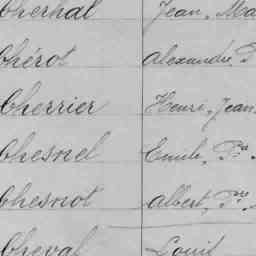 Cherhal Jean, Ma
Chérot Alexandre, P
Cherrier Henri, Jean
Chesnel Emile, Prs
Chesnot Albert, Prs
Cheval Louis